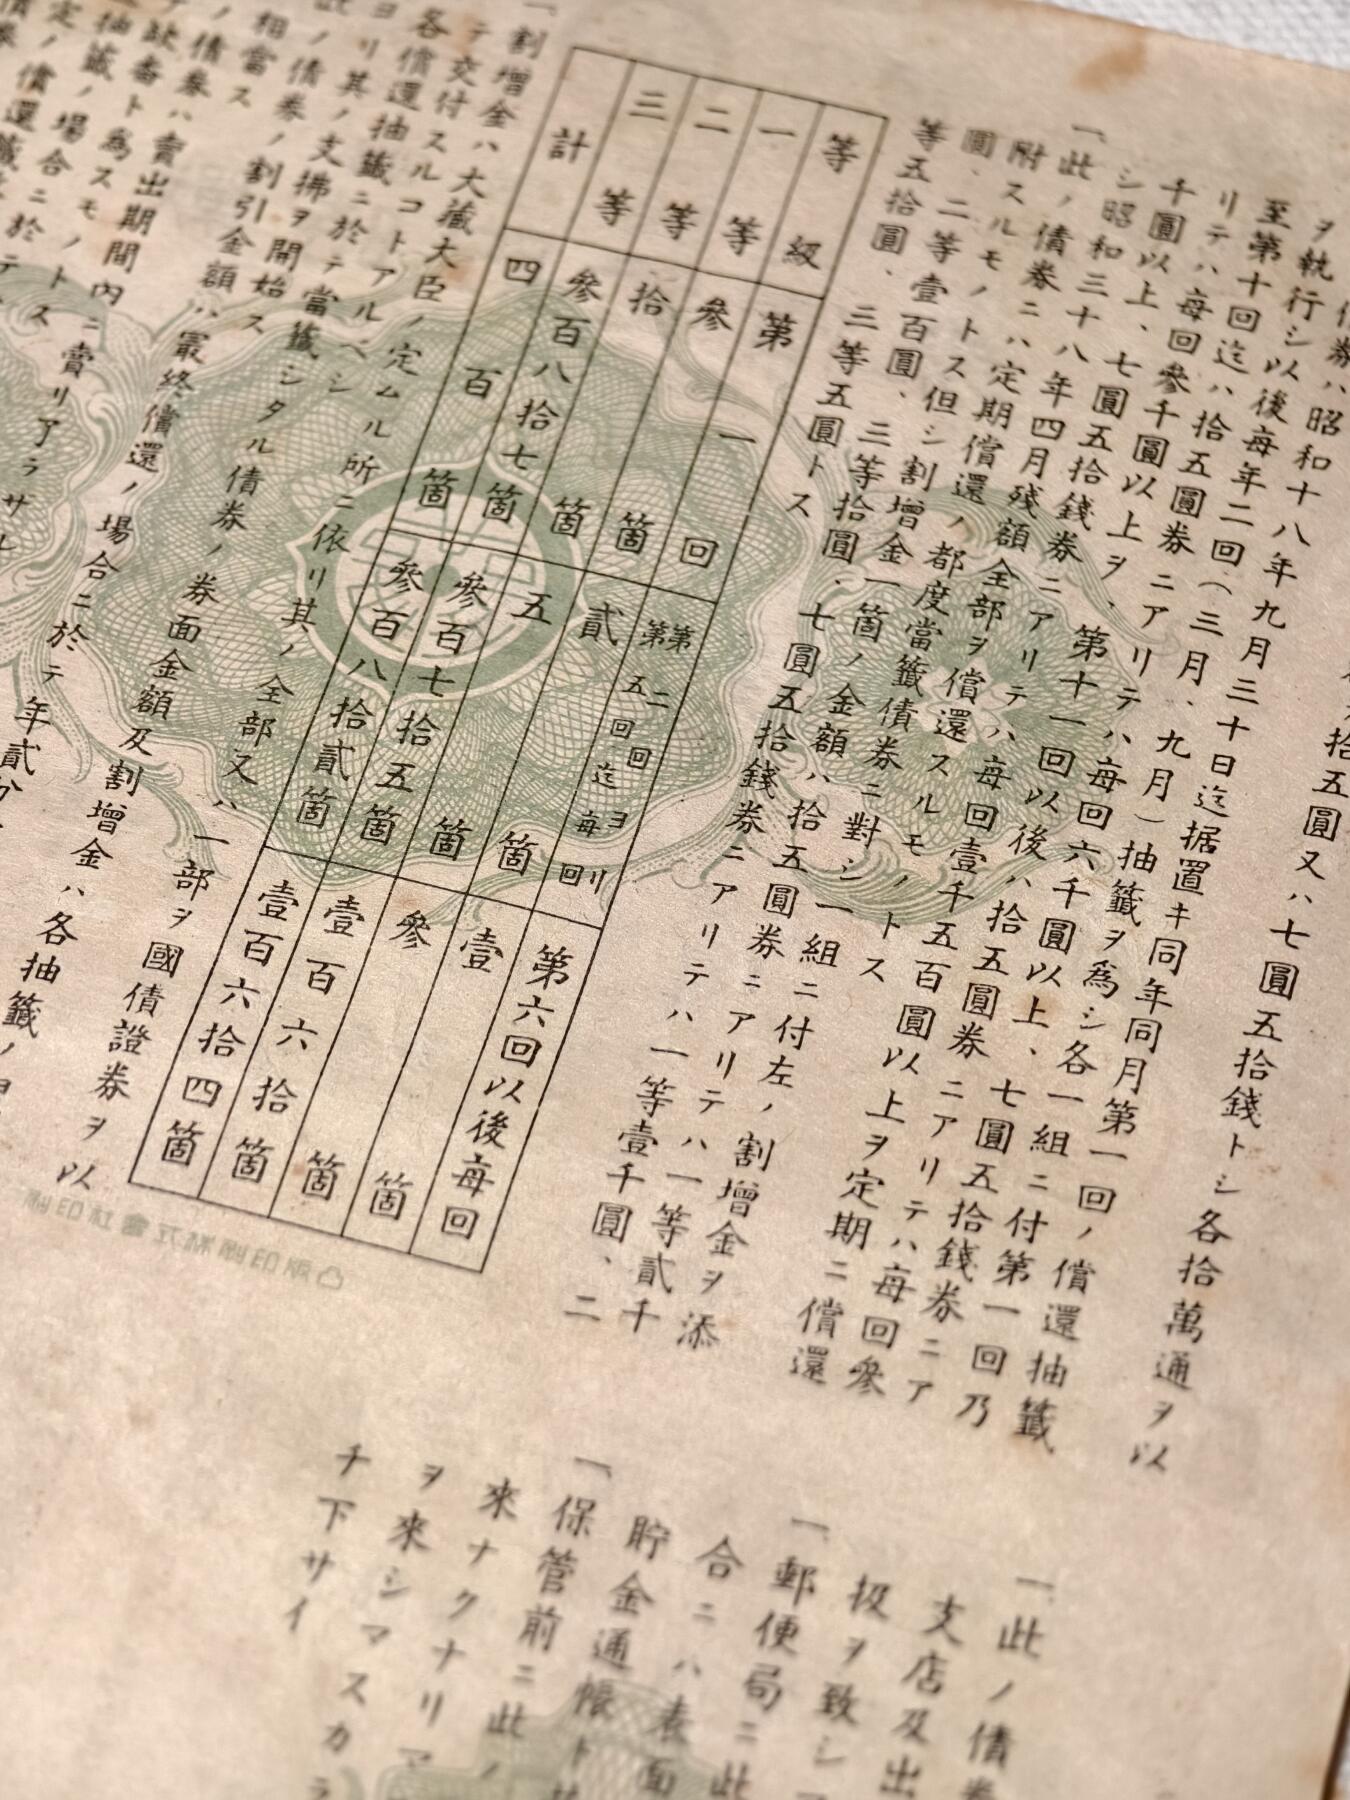 拾五圓又ハ七圓五拾錢トシ各拾萬通ヲ以
債券ハ昭和十八年九月三十日迄据置キ同年同月第一回ノ償還抽籤
ヲ執行シ以後每年二回(三月、九月)抽籤ヲ爲シ各一組ニ付第一回乃
至第十回迄ハ拾五圓券ニアリテハ每回六千圓以上、七圓五拾錢券ニア
リテハ每回參千圓以上ヲ、第十一回以後ハ拾五圓券ニアリテハ每回參
千圓以上、七圓五拾錢券ニアリテハ每回壹千五百圓以上ヲ定期ニ償還
シ昭和三十八年四月殘額全部ヲ償還スルモノトス
一、此ノ債券ニハ定期償還ノ都度當籤債券ニ對シ一組ニ付左ノ割增金ヲ添
附スルモノトス但シ割增金一箇ノ金額ハ拾五圓券ニアリテハ一等貳千
圓、二等壹百圓、三等拾圓、七圓五拾錢券ニアリテハ一等壹千圓、二
等五拾圓、三等五圓トス
等級 第一回 第二回ヨリ第五回迄每回 第六回以後每回
一等 參箇 貳箇 壹箇
二等 拾箇 五箇 參箇
三等 參百八拾七箇 參百七拾五箇 壹百六拾箇
計 四百箇 參百八拾貳箇 壹百六拾四箇
一、割增金ハ大藏大臣ノ定ムル所ニ依リ其ノ全部又ハ一部ヲ國債證券ヲ以
テ交付スルコトアルヘシ
各償還抽籤ニ於テ當籤シタル債券ノ券面金額及割增金ハ各抽籤ノ
ヨリ其ノ支拂ヲ開始ス
ノ債券ノ割引金額ハ最終償還ノ場合ニ於テ年貳分
相當ス
ノ債券ハ賣出期間內ニ賣リアラサル
缺番ト爲スモノトス
抽籤ノ場合ニ於テ
定ノ償還籤
一、此ノ債券
支店及出
扱ヲ致シマ
一、郵便局ニ此
合ニハ表面
貯金通帳ト
一、保管前ニ此ノ
來ナクナリマ
ヲ來シマスカラ
チ下サイ